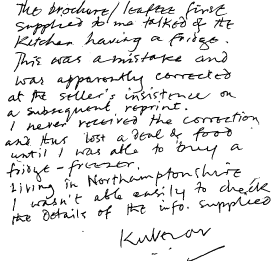 The brochure/leaflet first
supplied to me talked of the
kitchen having a fridge.
This was a mistake and
was apparently corrected
at the seller's insistence on
a subsequent reprint.
I never received the correction
and thus lost a deal of food
until I was able to buy a
fridge-freezer.
Living in Northamptonshire
I wasn't able easily to check
the details of the info. supplied